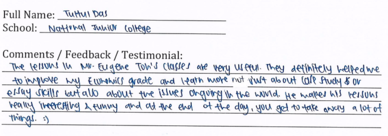 Full Name: Tuhul Das
School: National Junior College
Comments / Feedback / Testimonial:
The lessons in Mr. Eugene Toh's classes are very useful. They definitely helped me
to improve my Economics grade and learn more not just about Case Study & or
essay skills but also about the issues ongoing in the world. He makes his lessons
really interesting & funny and at the end of the day, you get to take away a lot of
things. :)